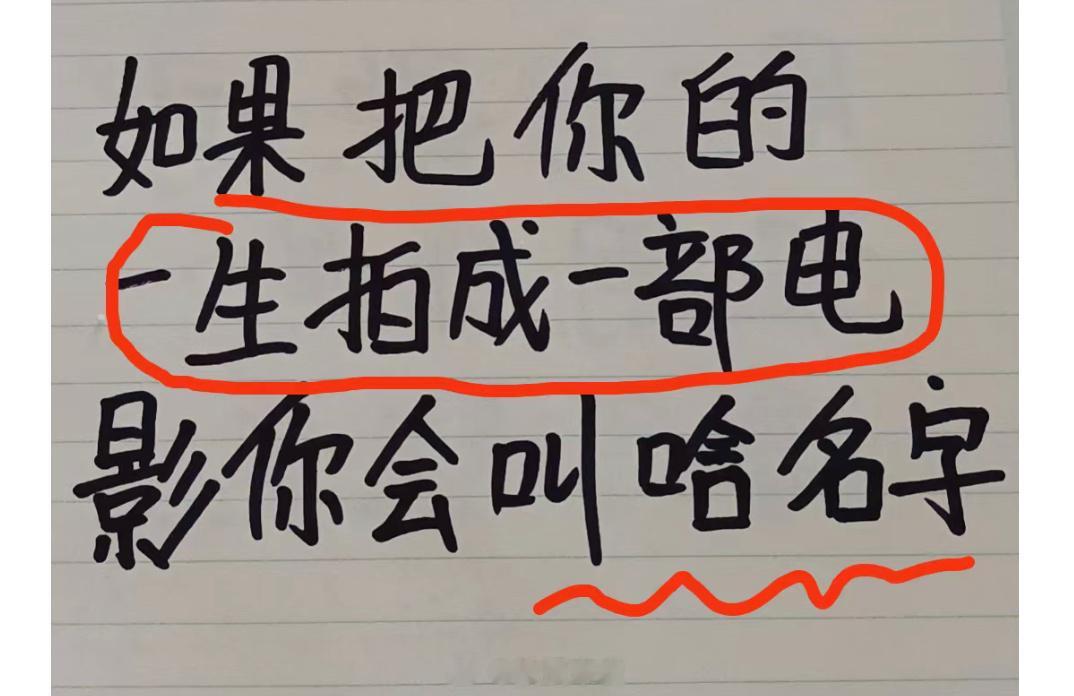 如果把你的
一生拍成一部电
影你会叫啥名字